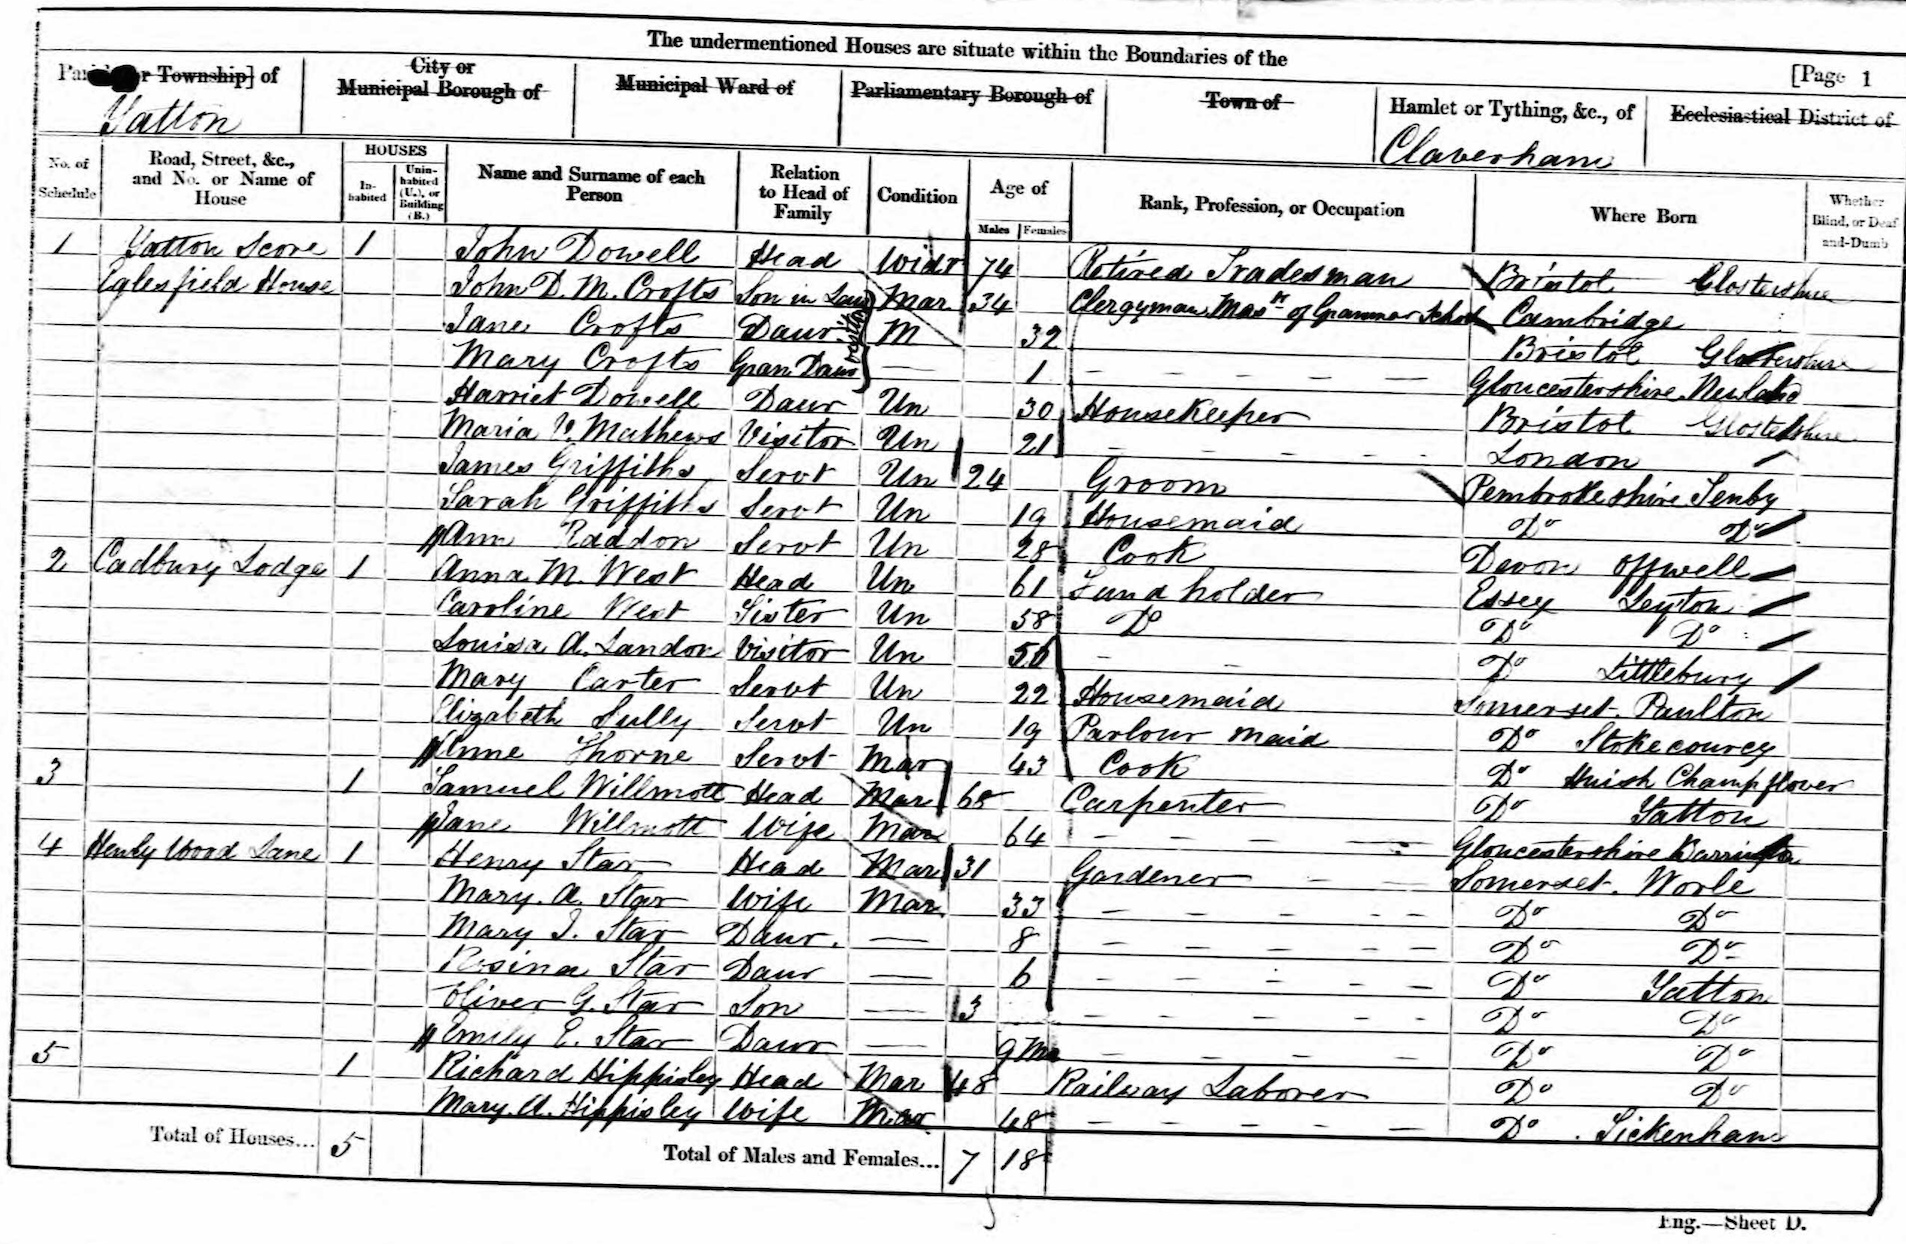 The undermentioned Houses are situate within the Boundaries of the
[Page 1
Parish or Township] of
City or
Municipal Borough of
Municipal Ward of
Parliamentary Borough of
Town of
Hamlet or Tything, &c., of
Ecclesiastical District of
Yatton
Claverham
No. of Schedule
Road, Street, &c., and No. or Name of House
HOUSES
In-habited
Unin-habited (U.), or Building (B.)
Name and Surname of each Person
Relation to Head of Family
Condition
Age of
Males
Females
Rank, Profession, or Occupation
Where Born
Whether Blind, or Deaf-and-Dumb
1 Yatton Score 1 John Dowell Head Widr 74 Retired Tradesman Bristol Glostershire
Eglesfield House John D. M. Crofts Son in Law Mar 34 Clergyman Mas.r of Grammar School Cambridge
Jane Crofts Daur M 32 Bristol Glostershire
visitors
Mary Crofts Gran Daur — 1 — — — — — Gloucestershire Newland
Harriet Dowell Daur Un 30 Housekeeper Bristol Glostershire
Maria V. Mathews Visitor Un 21 — — — — — London
James Griffiths Servt Un 24 Groom Pembrokeshire Tenby
Sarah Griffiths Servt Un 19 Housemaid Do Do
Ann Raddon Servt Un 28 Cook Devon Offwell
2 Cadbury Lodge 1 Anna M. West Head Un 61 Land holder Essex Leyton
Caroline West Sister Un 58 Do Do Do
Louisa A. Landon Visitor Un 56 — — Do Littlebury
Mary Carter Servt Un 22 Housemaid Somerset Paulton
Elizabeth Sully Servt Un 19 Parlour maid Do Stokecourcy
Anne Thorne Servt Mar 43 Cook Do Huish Champflower
3 1 Samuel Willmott Head Mar 68 Carpenter Do Yatton
Jane Willmott Wife Mar 64 — — — Gloucestershire
4 Henly Wood Lane 1 Henry Star Head Mar 31 Gardener — — — Somerset. Worle
Mary. A. Star Wife Mar 33 — — — — — Do Do
Mary J. Star Daur. — 8 — — — — — Do Do
Rosina Star Daur — 6 — — — — — Do Yatton
Oliver G. Star Son — 3 Do Do
Emily E. Star Daur — 9 Mo — — — — — Do Do
5 1 Richard Hippisley Head Mar 48 Railway Laborer Do Do
Mary. A. Hippisley Wife Mar 48 — — — — — Do
Total of Houses... 5 Total of Males and Females... 7 18
Eng.—Sheet D.